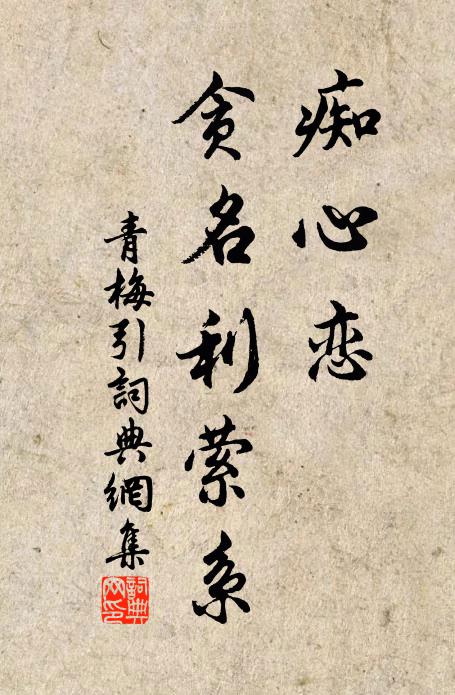 痴心恋
贪名利萦系
青梅引詞典網集
詞典